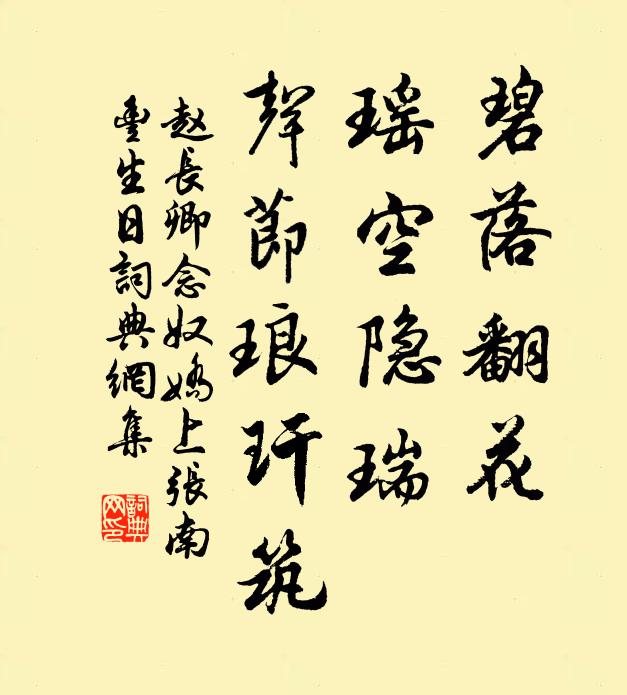 碧落翻花
瑶空隐瑞
聲節琅玕筑
赵長卿念奴嬌上張南
豐生日詞典網集
詞典网印